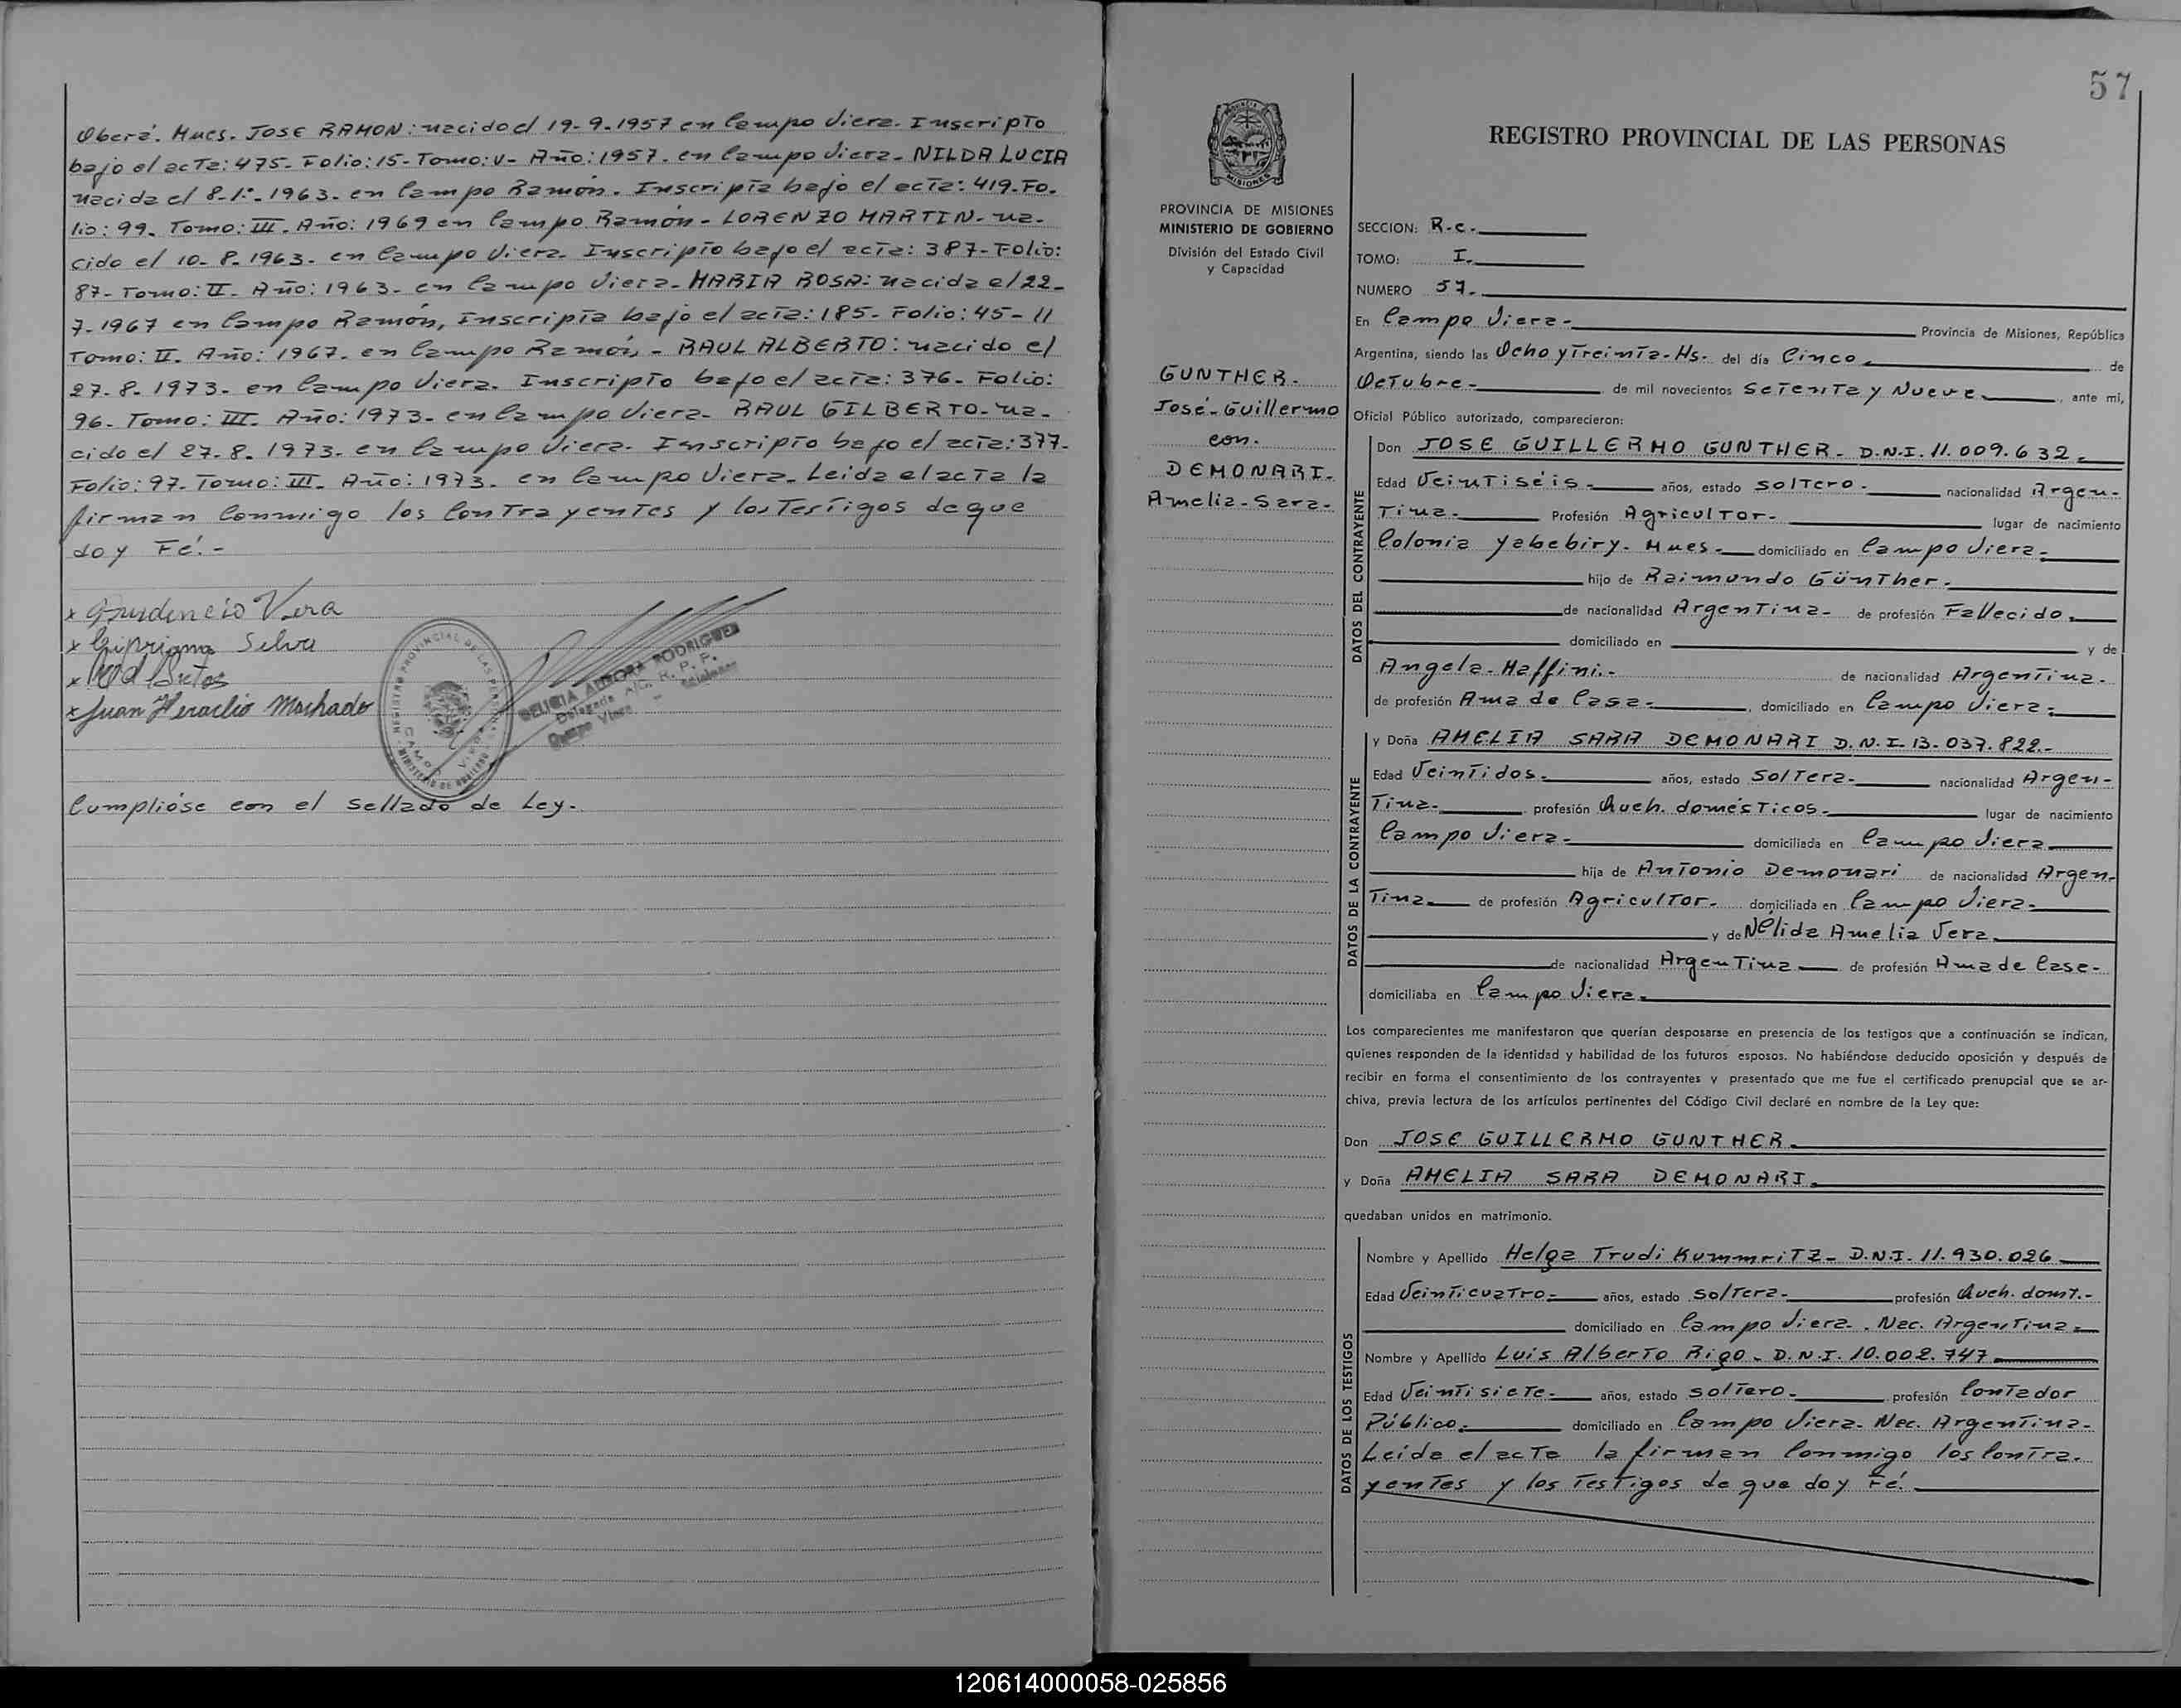 Oberá. Mnes. JOSE RAMON: nacido el 19-9-1957 en Campo Viera. Inscripto
bajo el acta: 475- Folio: 15- Tomo: V- Año: 1957. en Campo Viera- NILDA LUCIA
nacida el 8-1º-1963- en Campo Ramón. Inscripta bajo el acta: 419-Fo-
lio: 99. Tomo: III. Año: 1969 en Campo Ramón- LORENZO MARTIN- na-
cido el 10-8-1963- en Campo Viera. Inscripto bajo el acta: 387-Folio:
87- Tomo: II- Año: 1963- en Campo Viera- MARIA ROSA: nacida el 22-
7-1967 en Campo Ramón, Inscripta bajo el acta: 185- Folio: 45-
Tomo: II. Año: 1967. en Campo Ramón - RAUL ALBERTO: nacido el
27-8-1973- en Campo Viera. Inscripto bajo el acta: 376- Folio:
96- Tomo: III- Año: 1973- en Campo Viera- RAUL GILBERTO- na-
cido el 27-8-1973- en Campo Viera. Inscripto bajo el acta: 377-
Folio: 97- Tomo: III- Año: 1973- en Campo Viera- Leida el acta la
firman conmigo los Contrayentes y los Testigos de que
doy Fé.-
x Prudencio Vera
x Cipriana Silva
x
x Juan Heraclio Machado
REGISTRO PROVINCIAL DE LAS PERSONAS
MINISTERIO DE GOBIERNO
CAMPO VIERA
DELICIA AURORA RODRIGUEZ
Delegada A/C. R. P. P.
Campo Viera - Misiones
Cumplióse con el sellado de Ley-
57
PROVINCIA DE MISIONES
MINISTERIO DE GOBIERNO
División del Estado Civil
y Capacidad
GUNTHER-
José-Guillermo
con-
DEMONARI-
Amelia-Sara-
REGISTRO PROVINCIAL DE LAS PERSONAS
SECCION: R-c-
TOMO: I-
NUMERO 57-
En Campo Viera- Provincia de Misiones, República
Argentina, siendo las Ocho y Treinta-Hs- del día Cinco- de
Octubre- de mil novecientos Setenta y Nueve, ante mí,
Oficial Público autorizado, comparecieron:
DATOS DEL CONTRAYENTE
Don JOSE GUILLERMO GUNTHER- D.N.I. 11.009.632-
Edad Veintiséis- años, estado soltero- nacionalidad Argen-
tina- Profesión Agricultor- lugar de nacimiento
Colonia Yabebiry- Mnes- domiciliado en Campo Viera-
hijo de Raimundo Günther-
de nacionalidad Argentina- de profesión Fallecido-
domiciliado en y de
Angela-Maffini- de nacionalidad Argentina-
de profesión Ama de Casa-, domiciliado en Campo Viera-
DATOS DE LA CONTRAYENTE
y Doña AMELIA SARA DEMONARI D.N.I. 13-037.822-
Edad Veintidos- años, estado Soltera- nacionalidad Argen-
tina- profesión Queh. domésticos- lugar de nacimiento
Campo Viera- domiciliada en Campo Viera
hija de Antonio Demonari de nacionalidad Argen-
tina- de profesión Agricultor- domiciliada en Campo Viera-
y de Nélida Amelia Vera
de nacionalidad Argentina de profesión Ama de Casa-
domiciliaba en Campo Viera-
Los comparecientes me manifestaron que querían desposarse en presencia de los testigos que a continuación se indican,
quienes responden de la identidad y habilidad de los futuros esposos. No habiéndose deducido oposición y después de
recibir en forma el consentimiento de los contrayentes y presentado que me fue el certificado prenupcial que se ar-
chiva, previa lectura de los artículos pertinentes del Código Civil declaré en nombre de la Ley que:
Don JOSE GUILLERMO GUNTHER-
y Doña AMELIA SARA DEMONARI-
quedaban unidos en matrimonio.
DATOS DE LOS TESTIGOS
Nombre y Apellido Helga Trudi Kummritz- D.N.I. 11.930.026
Edad Veinticuatro- años, estado Soltera- profesión Queh. domt.-
domiciliado en Campo Viera-. Nac. Argentina-
Nombre y Apellido Luis Alberto Rigo- D.N.I. 10.002.747
Edad Veintisiete- años, estado soltero- profesión Contador
Público- domiciliado en Campo Viera- Nac. Argentina-
Leída el acta la firman conmigo los Contra-
yentes y los testigos de que doy Fé.
120614000058-025856